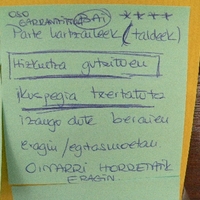 OSO
GARRANTZITSUA! ****
Parte hartzaileek (taldeek)
Hizkuntza gutxituen
ikuspegia txertatutez
izango dute beraien
eragin/egitasmoetan.
OINARRI HORRETATIK
ERAGIN.